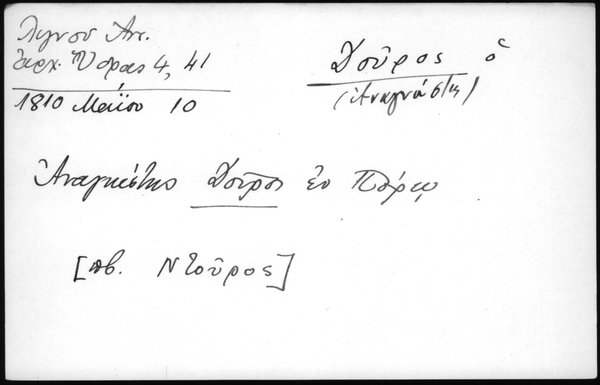 Λιγνού Αντ.
ἀρχ. Ὕδρας 4, 41
1810 Μαΐου 10
Δοῦρος ὁ
(Ἀναγνώστης)
Ἀναγνώστης Δοῦρος ἐν Πόρῳ
[πβ. Ντοῦρος]